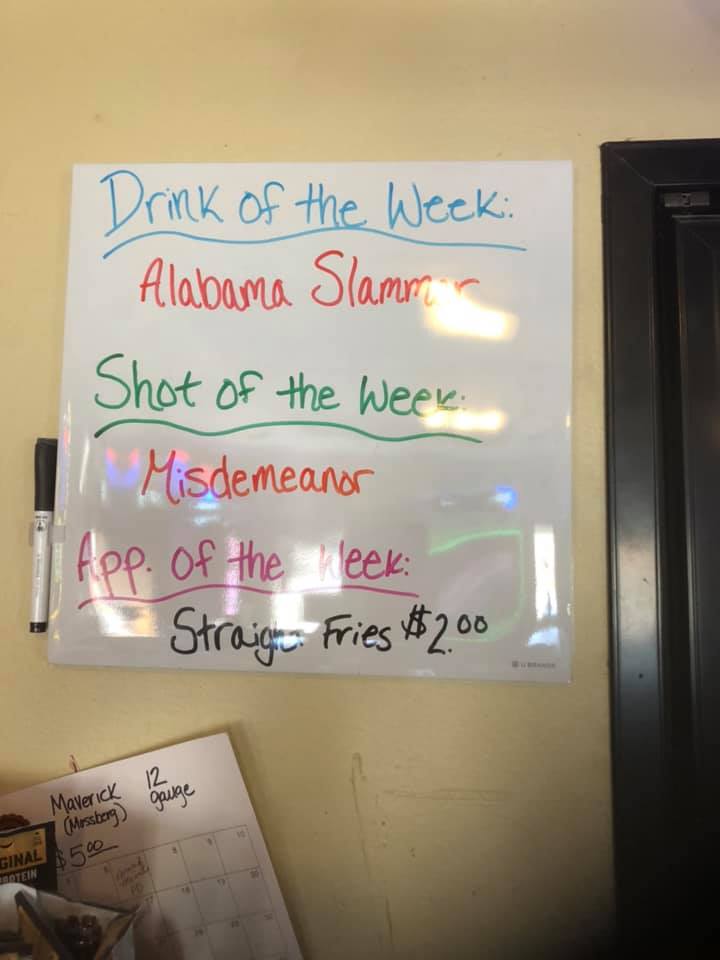 Drink of the Week:
Alabama Slammer
Shot of the Week:
Misdemeanor
App. of the Week:
Straight Fries $2.00
U BRANDS
Maverick 12
(Mossberg) gauge
$5.00
GINAL
PROTEIN
8 9 10
17